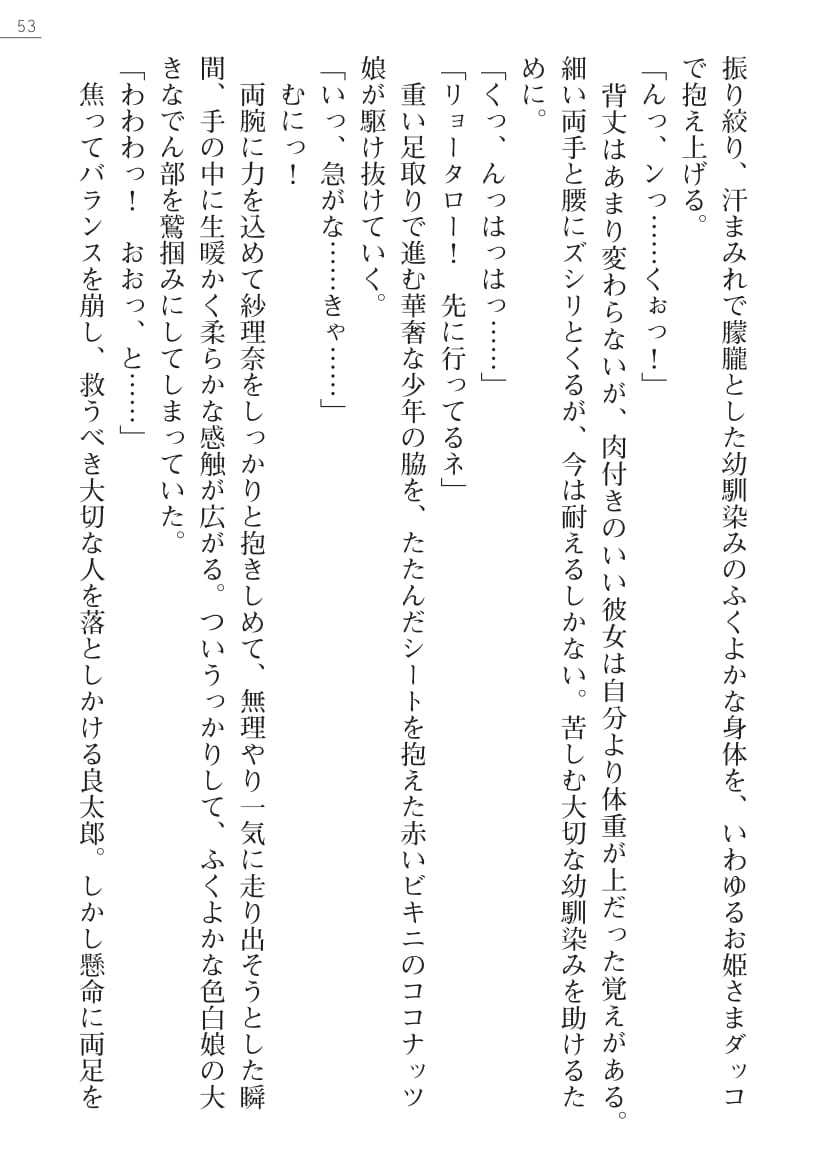 53
振り絞り、汗まみれで朦朧とした幼馴染みのふくよかな身体を、いわゆるお姫さまダッコ
で抱え上げる。
「んっ、ンっ……くぉっ！」
背丈はあまり変わらないが、肉付きのいい彼女は自分より体重が上だった覚えがある。
細い両手と腰にズシリとくるが、今は耐えるしかない。苦しむ大切な幼馴染みを助けるた
めに。
「くっ、んっはっはっ……」
「リョータロー！　先に行ってるネ」
重い足取りで進む華奢な少年の脇を、たたんだシートを抱えた赤いビキニのココナッツ
娘が駆け抜けていく。
「いっ、急がな……きゃ……」
むにっ！
両腕に力を込めて紗理奈をしっかりと抱きしめて、無理やり一気に走り出そうとした瞬
間、手の中に生暖かく柔らかな感触が広がる。ついうっかりして、ふくよかな色白娘の大
きなでん部を鷲掴みにしてしまっていた。
「わわわっ！　おおっ、と……」
焦ってバランスを崩し、救うべき大切な人を落としかける良太郎。しかし懸命に両足を